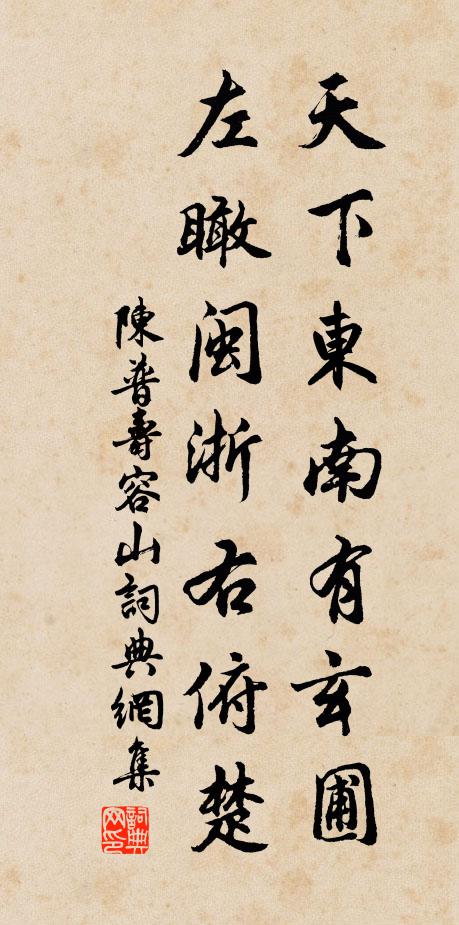 天下東南有玄圃
左瞰閩浙右俯楚
陳普壽容山詞典網集
詞典網印